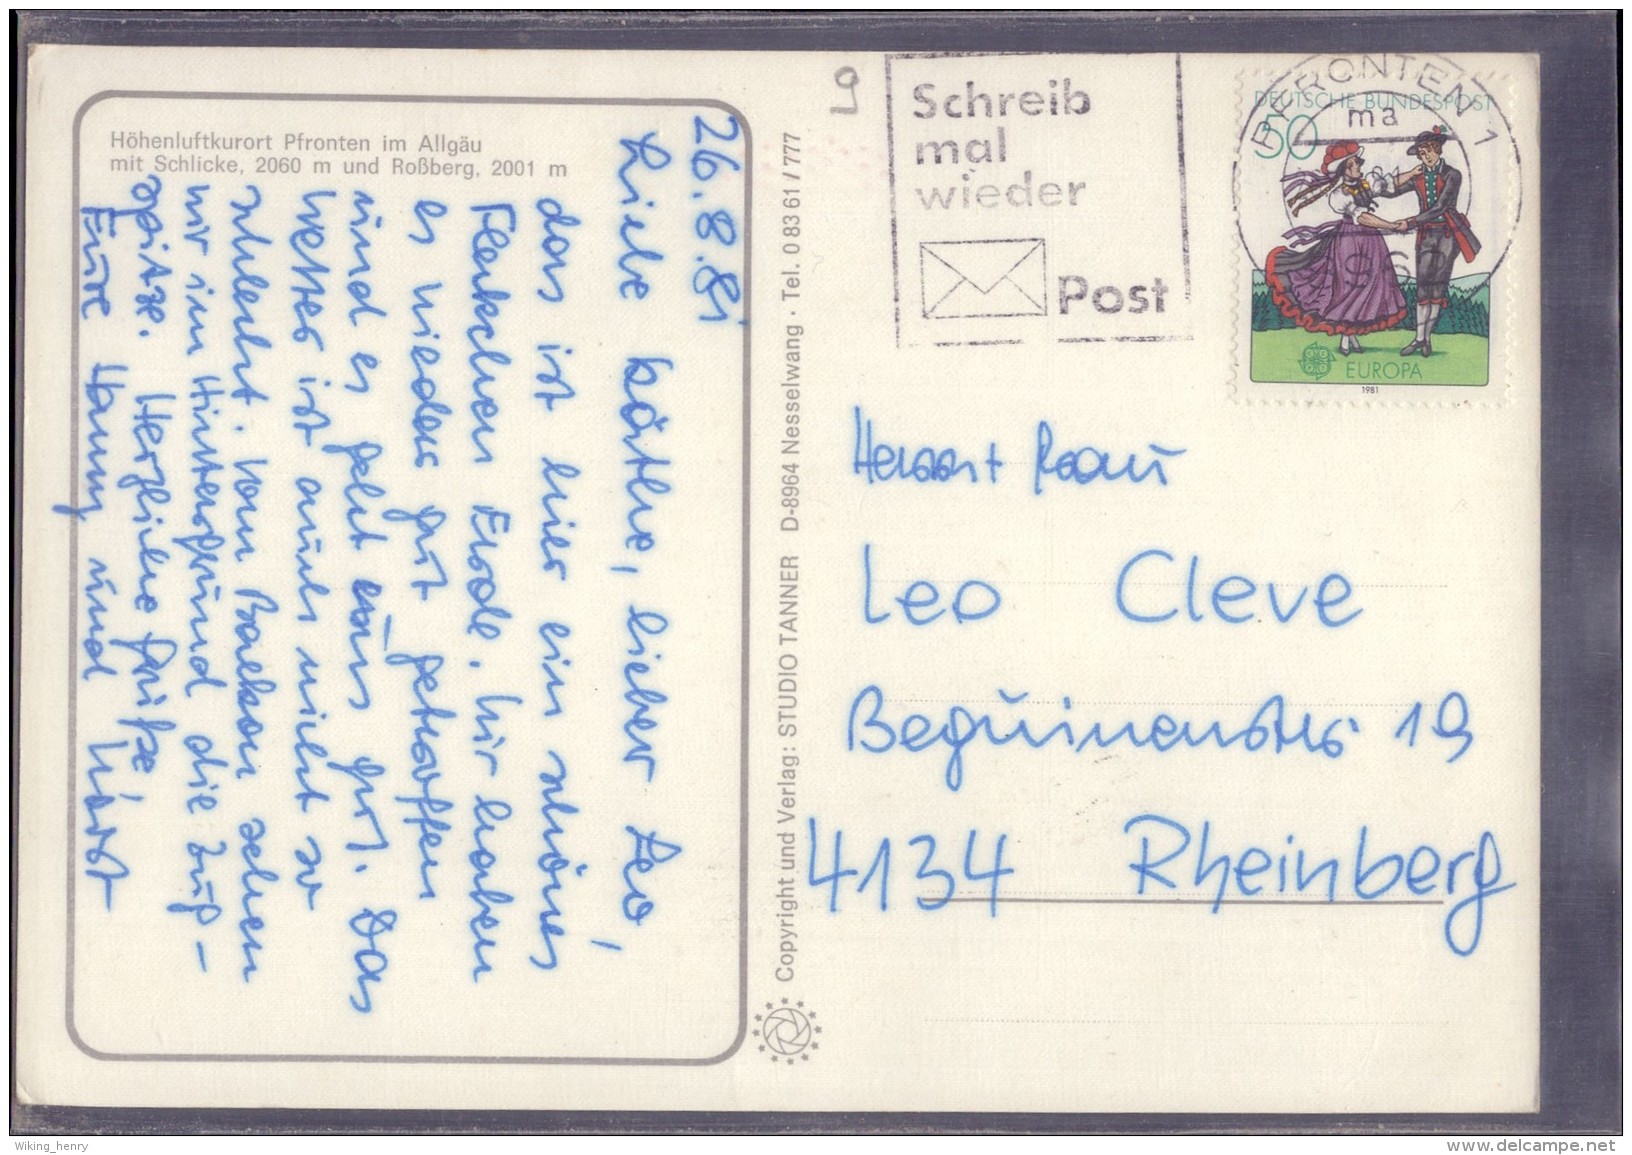 Höhenluftkurort Pfronten im Allgäu
mit Schlicke, 2060 m und Roßberg, 2001 m
26.8.81
Liebe Käthe, lieber Leo,
das ist hier ein schönes
Fleckchen Erde. Wir haben
es wieder gut getroffen
und es geht uns gut. Das
Wetter ist auch nicht so
schlecht. Vom Balkon sehen
wir im Hintergrund die Zug-
spitze. Herzliche Grüße,
Eure Hanny und Horst
Copyright und Verlag: STUDIO TANNER D-8964 Nesselwang · Tel. 0 83 61 / 777
9
Schreib
mal
wieder
Post
PFRONTEN 1
ma
DEUTSCHE BUNDESPOST
50
EUROPA
1981
Leo Cleve
Beguinenstr. 19
4134 Rheinberg
Wiking_henry
www.delcampe.net